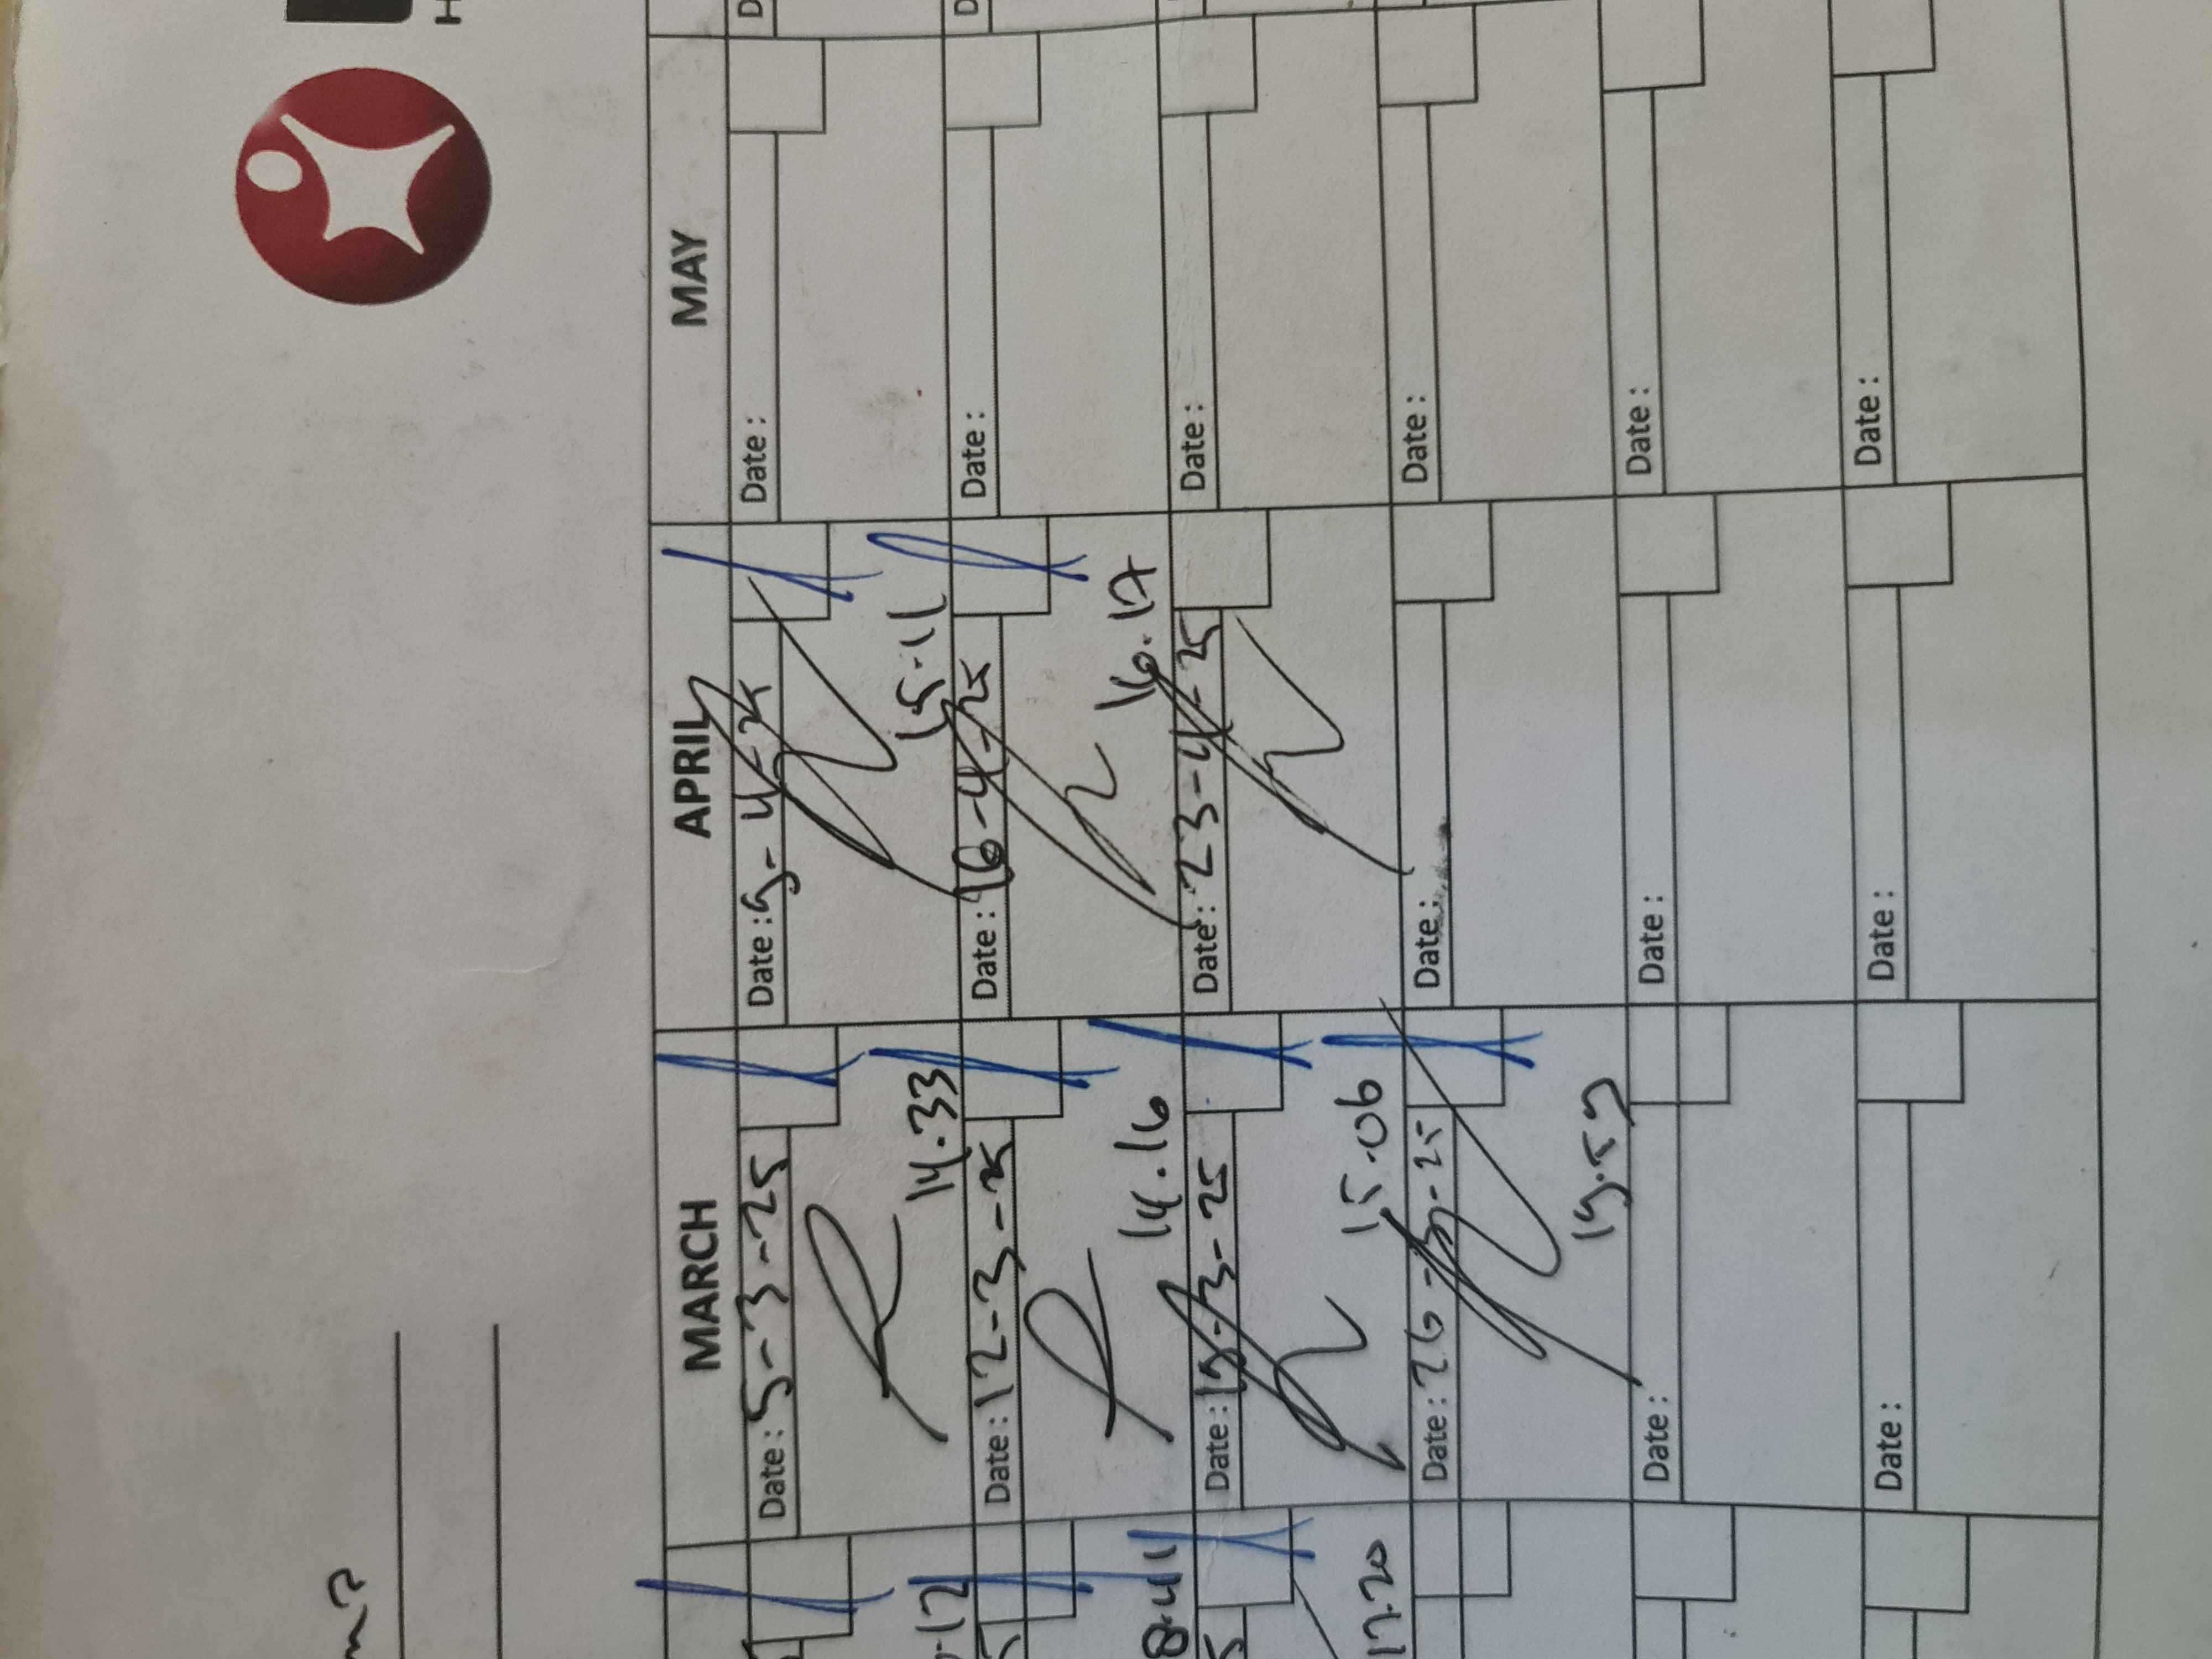 MARCH APRIL MAY
Date : 5-3-25 Date : 9-4-25 Date :
14.33 15.11
Date : 12-3-25 Date : 16-4-25 Date :
14.16 16.17
Date : 19-3-25 Date : 23-4-25 Date :
15.06
17.20
Date : 26-3-25 Date : Date :
Date : Date : Date :
Date : Date : Date :